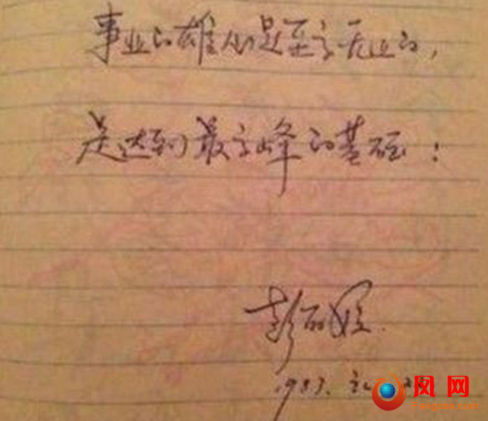 事业的雄心是至高无上的,
是达到最高峰的基础:
彭丽媛
1983.
凤网